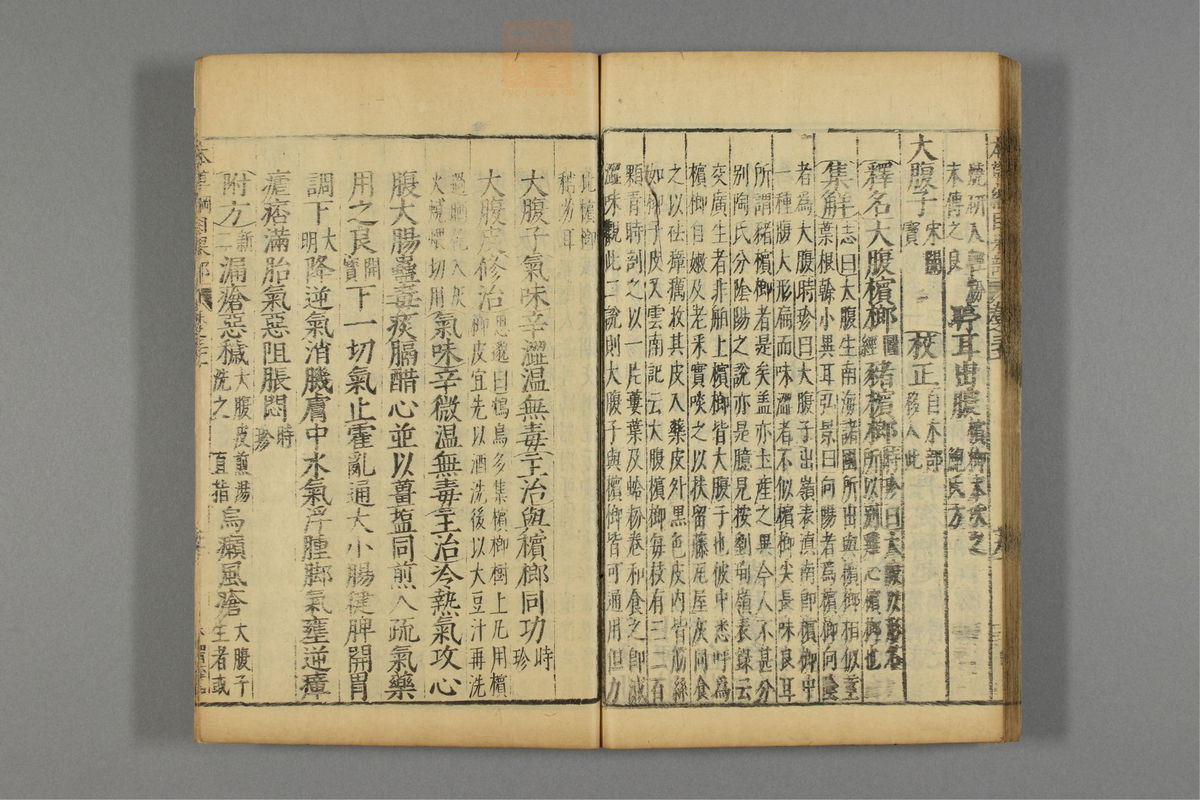 燒研入輕粉
末傅之良 聤耳出膿 檳榔末吹之 鮑氏方
大腹子 宋開寶 校正 自木部移入此
釋名大腹檳榔 圖經 豬檳榔 時珍曰大腹以形名所以別雞心檳榔也
集解 志曰大腹生南海諸國所出與檳榔相似莖
葉根幹小異耳弘景曰向陽者為檳榔向陰
者為大腹時珍曰大腹子出嶺表滇南即檳榔中
一種腹大形扁而味澀者不似檳榔尖長味良耳
所謂豬檳榔者是矣盖亦土產之異今人不甚分
別陶氏分陰陽之說亦是臆見按劉恂嶺表錄云
交廣生者非舶上檳榔皆大腹子也彼中悉呼為
檳榔自嫩及老采實啖之以扶留藤瓦屋灰同食
之以祛瘴癘收其皮入藥皮外黑色皮內皆筋絲
如椰子皮又雲南記云大腹檳榔每枝有三二百
顆青時剖之以一片蔞葉及蛤粉卷和食之即減
澀味觀此二說則大腹子與檳榔皆可通用但力
比檳榔
稍劣耳
大腹子氣味辛澀溫無毒主治與檳榔同功 時珍
大腹皮修治 思邈曰鴆鳥多集檳榔樹上凡用檳
榔皮宜先以酒洗後以大豆汁再洗
過晒乾入灰
火煨煨切用 氣味辛微溫無毒主治冷熱氣攻心
腹大腸蠱毒痰膈醋心並以薑鹽同煎入疏氣藥
用之良 開寶 下一切氣止霍亂通大小腸健脾開胃
調中 大明 降逆氣消肌膚中水氣浮腫腳氣壅逆瘴
瘧痞滿胎氣惡阻脹悶 時珍
附方 新二 漏瘡惡穢 大腹皮煎湯洗之 直指 烏癩風瘡 大腹子生者或